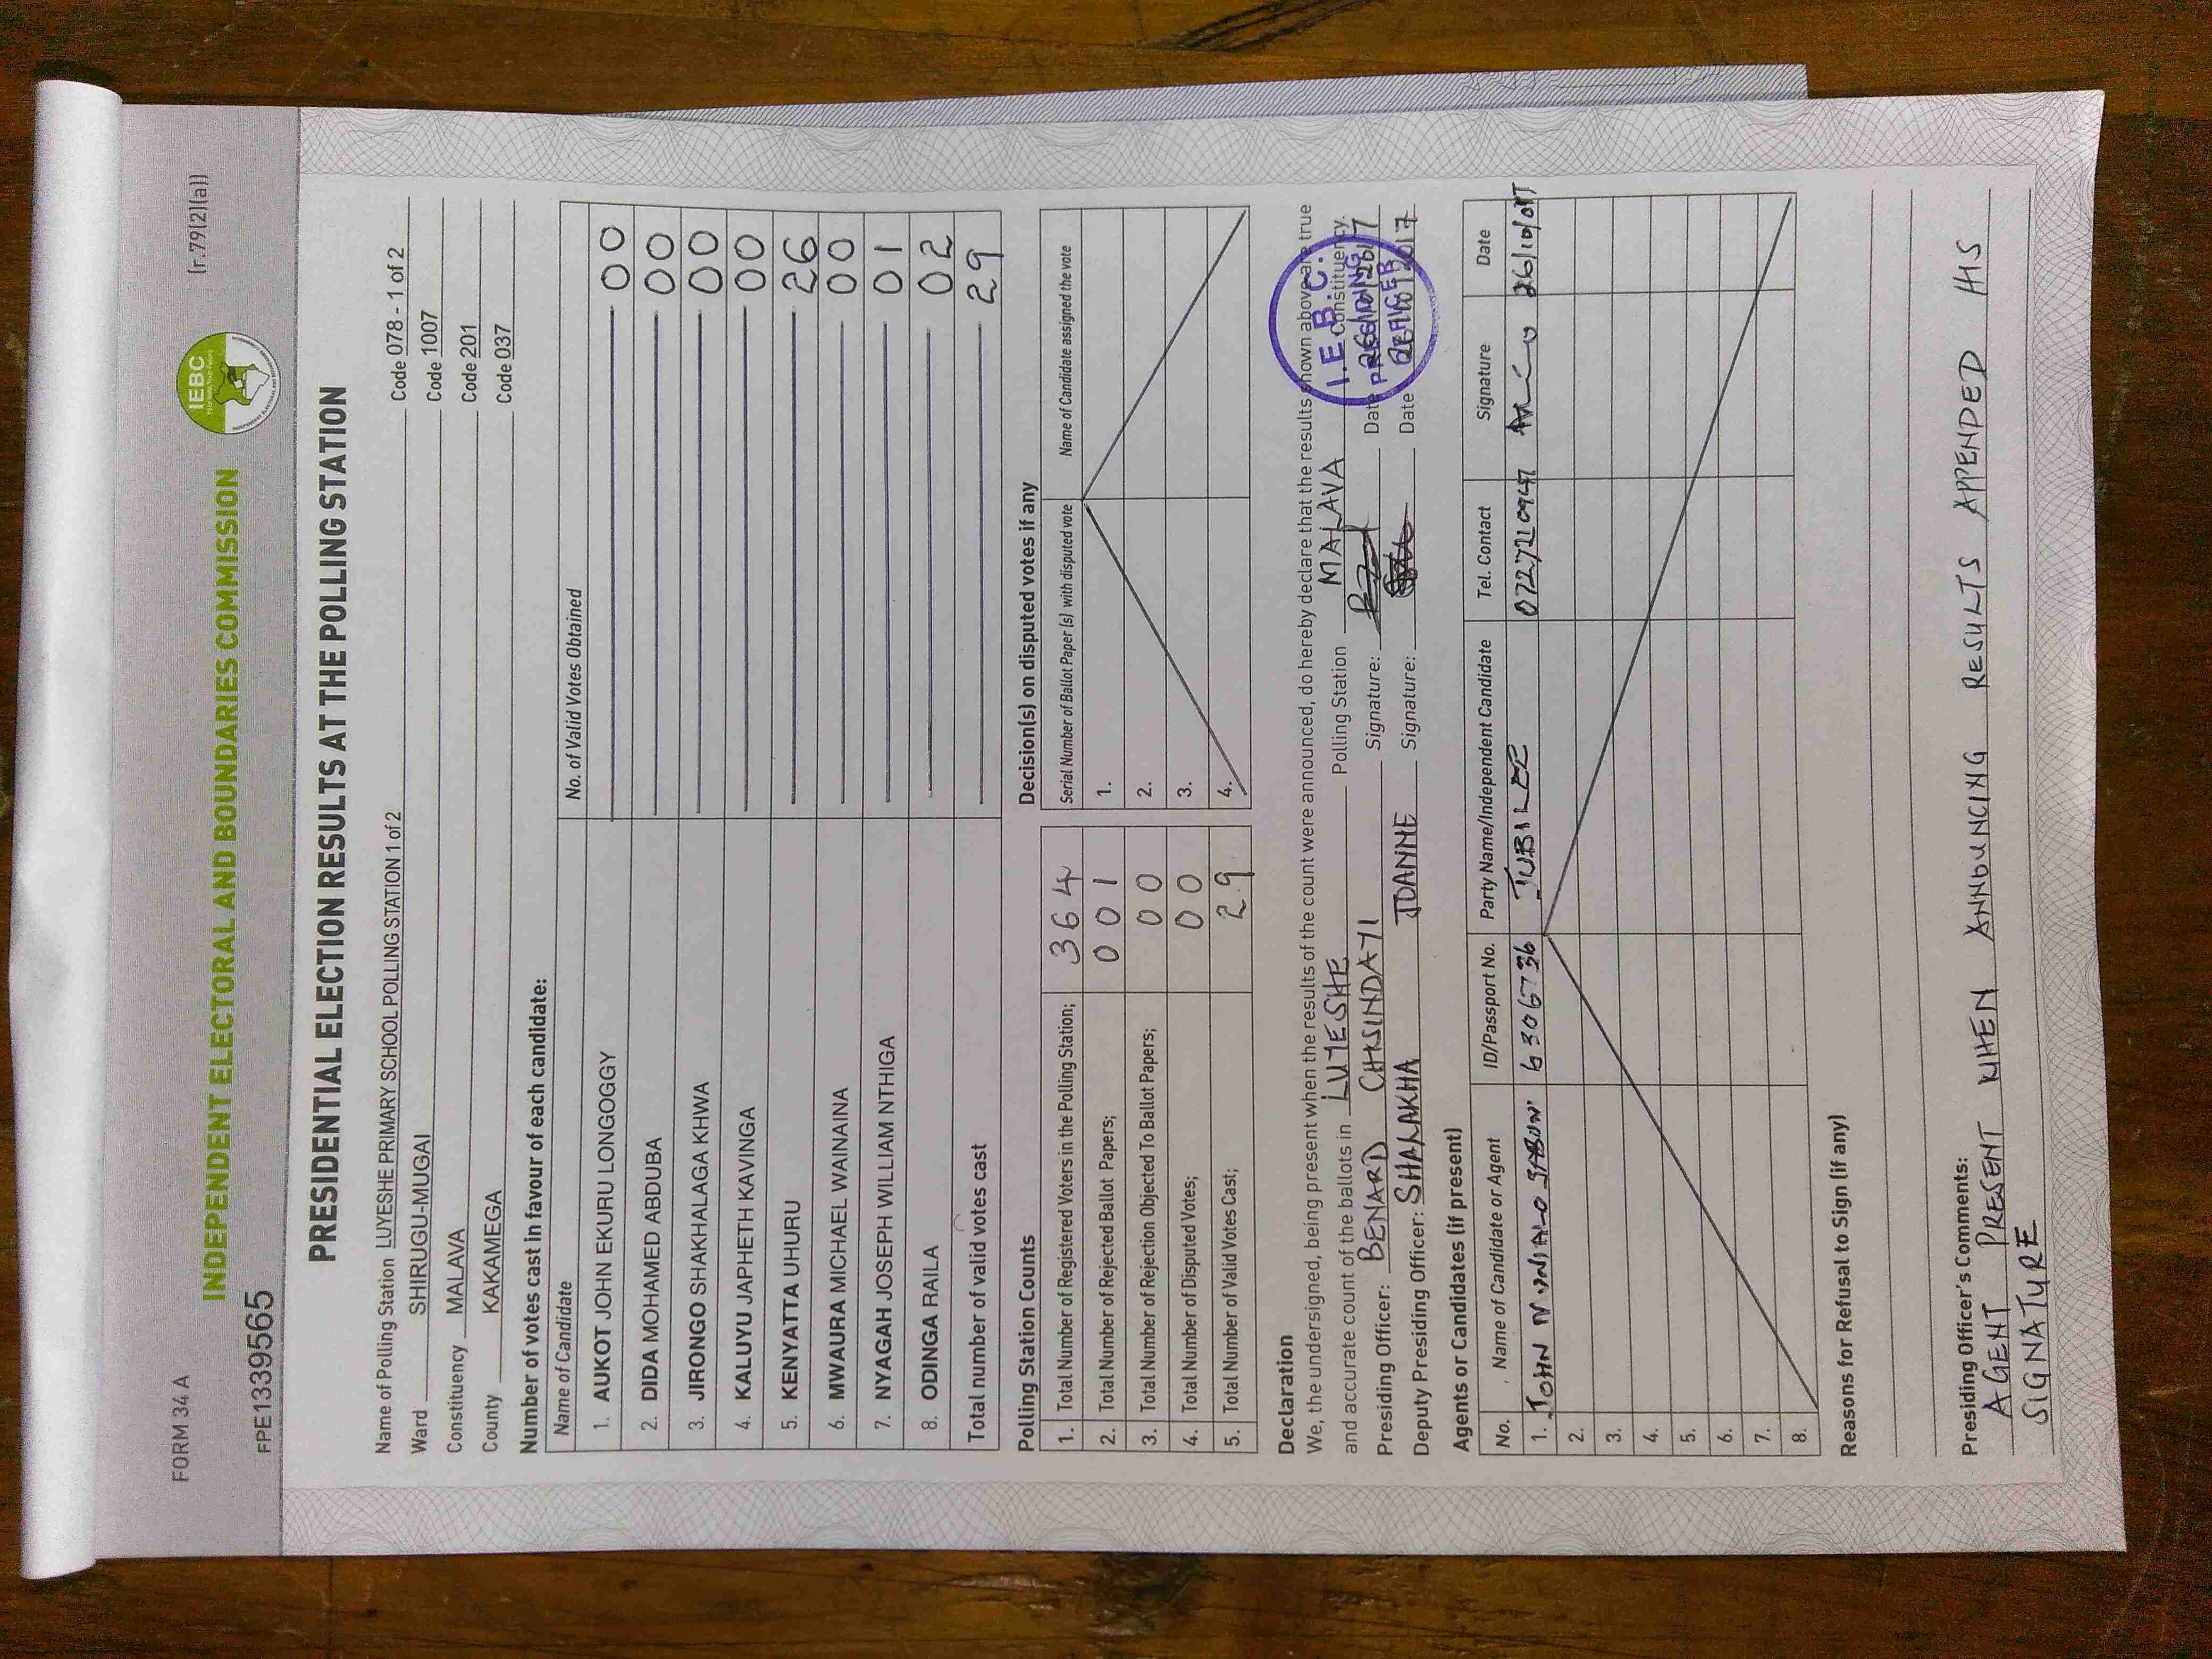 FORM 34 A
(r.79(2)(a))
INDEPENDENT ELECTORAL AND BOUNDARIES COMMISSION
IEBC
FPE1339565
PRESIDENTIAL ELECTION RESULTS AT THE POLLING STATION
Name of Polling Station LUYESHE PRIMARY SCHOOL POLLING STATION 1 of 2 Code 078 - 1 of 2
Ward SHIRUGU-MUGAI Code 1007
Constituency MALAVA Code 201
County KAKAMEGA Code 037
Number of votes cast in favour of each candidate:
Name of Candidate No. of Valid Votes Obtained
1. AUKOT JOHN EKURU LONGOGGY 00
2. DIDA MOHAMED ABDUBA 00
3. JIRONGO SHAKHALAGA KHWA 00
4. KALUYU JAPHETH KAVINGA 00
5. KENYATTA UHURU 26
6. MWAURA MICHAEL WAINAINA 00
7. NYAGAH JOSEPH WILLIAM NTHIGA 01
8. ODINGA RAILA 02
Total number of valid votes cast 29
Polling Station Counts
1. Total Number of Registered Voters in the Polling Station; 364
2. Total Number of Rejected Ballot Papers; 001
3. Total Number of Rejection Objected To Ballot Papers; 00
4. Total Number of Disputed Votes; 00
5. Total Number of Valid Votes Cast; 29
Decision(s) on disputed votes if any
Serial Number of Ballot Paper (s) with disputed vote Name of Candidate assigned the vote
1.
2.
3.
4.
Declaration
We, the undersigned, being present when the results of the count were announced, do hereby declare that the results shown above are true
and accurate count of the ballots in LUYESHE Polling Station MALAVA Constituency.
Presiding Officer: BENARD Signature: Date 26/10/2017
Deputy Presiding Officer: SHALAKHA JOANNE Signature: Date 26/10/2017
I.E.B.C.
PRESIDING
OFFICER
Agents or Candidates (if present)
No. Name of Candidate or Agent ID/Passport No. Party Name/Independent Candidate Tel. Contact Signature Date
1. JOHN 6306736 JUBILEE 0722721094
2.
3.
4.
5.
6.
7.
8.
Reasons for Refusal to Sign (if any)
Presiding Officer's Comments:
AGENT PRESENT WHEN ANNOUNCING RESULTS APPENDED HIS
SIGNATURE